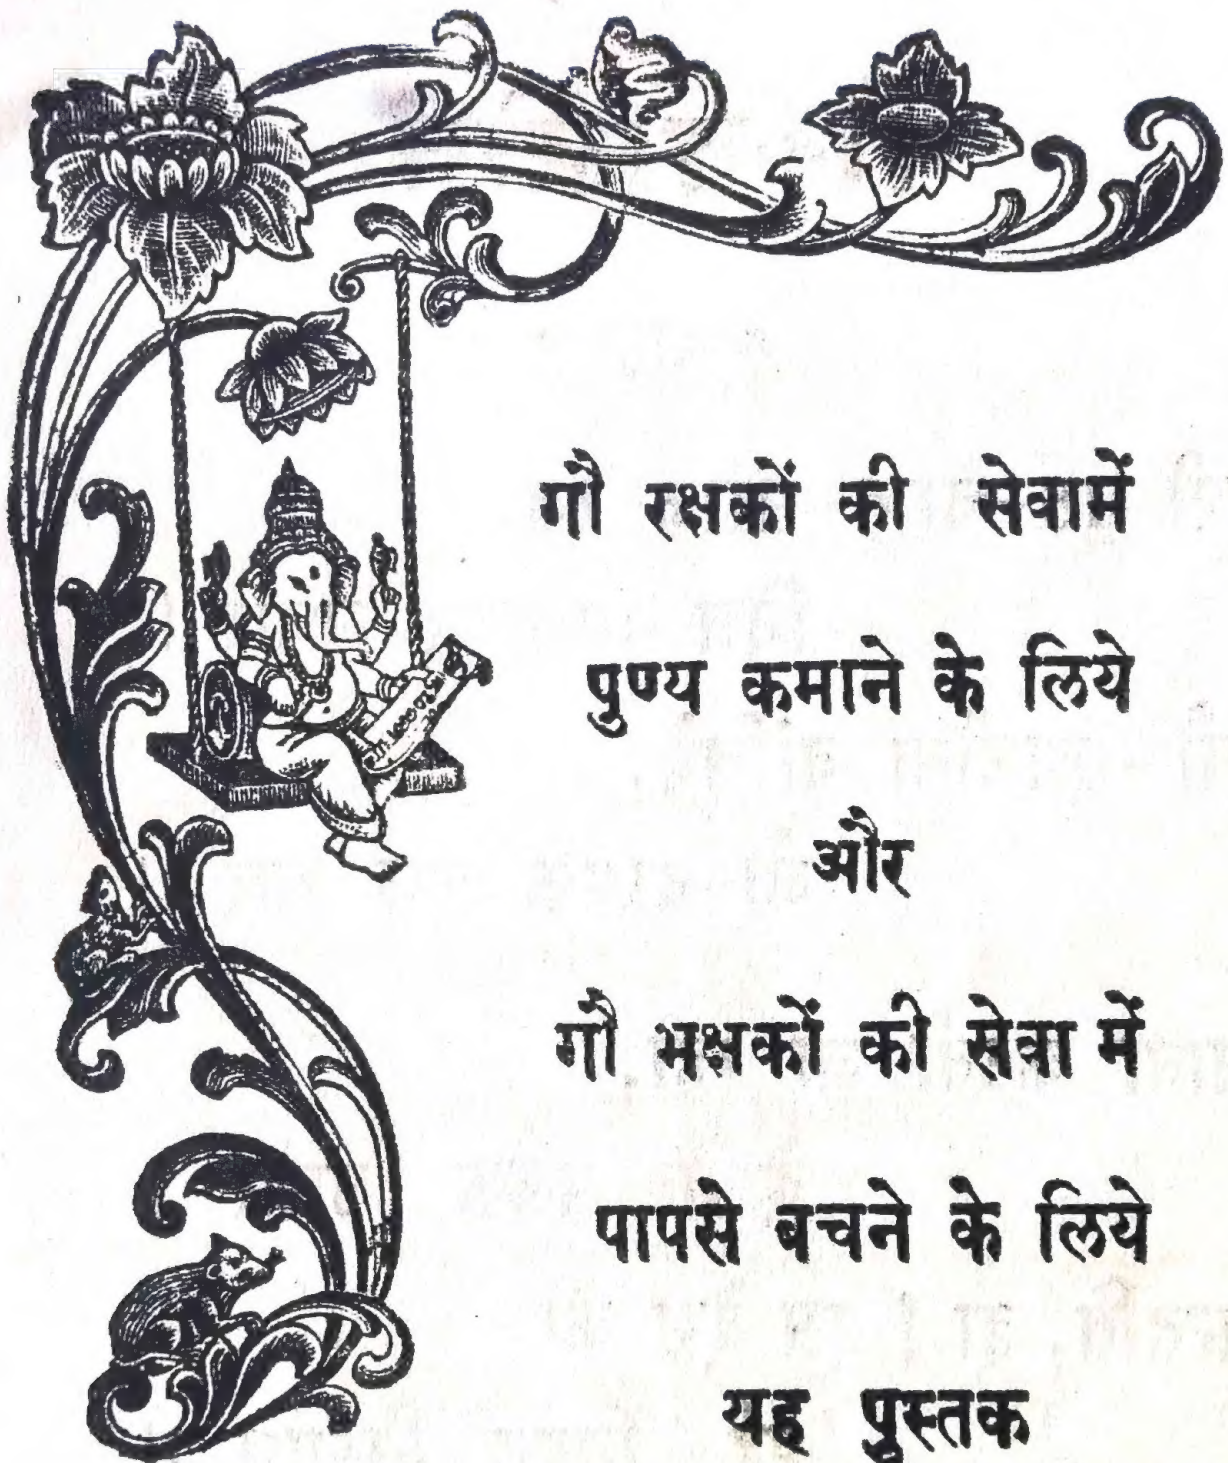 गौ रक्षकों की सेवामें
पुण्य कमाने के लिये
और
गौ भक्षकों की सेवा में
पापसे बचने के लिये
यह पुस्तक